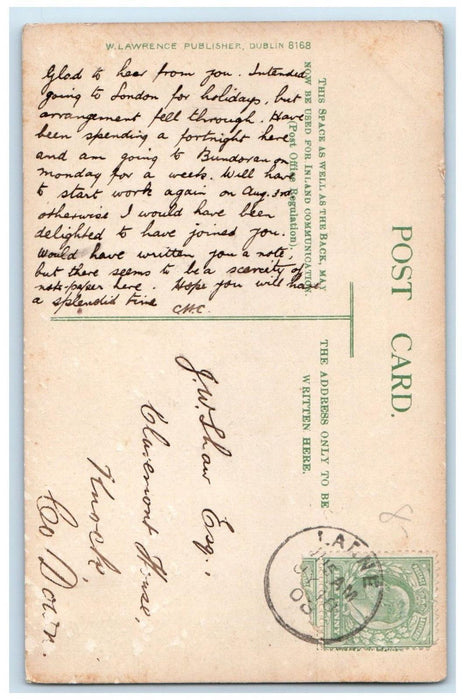 W. LAWRENCE PUBLISHER, DUBLIN 8168
Glad to hear from you. Intended
going to London for holidays, but
arrangement fell through. Have
been spending a fortnight here
and am going to Bundoran on
monday for a week. Will have
to start work again on Aug. 3rd
otherwise I would have been
delighted to have joined you.
Would have written you a note,
but there seems to be a scarcity of
note-paper here. Hope you will have
a splendid time
C.H.C.
THIS SPACE AS WELL AS THE BACK, MAY
NOW BE USED FOR INLAND COMMUNICATION
(Post Office Regulation).
POST CARD.
THE ADDRESS ONLY TO BE
WRITTEN HERE.
J. W. Shaw Esq.,
Claremont House,
Knock,
Co Down.
8-
LARNE